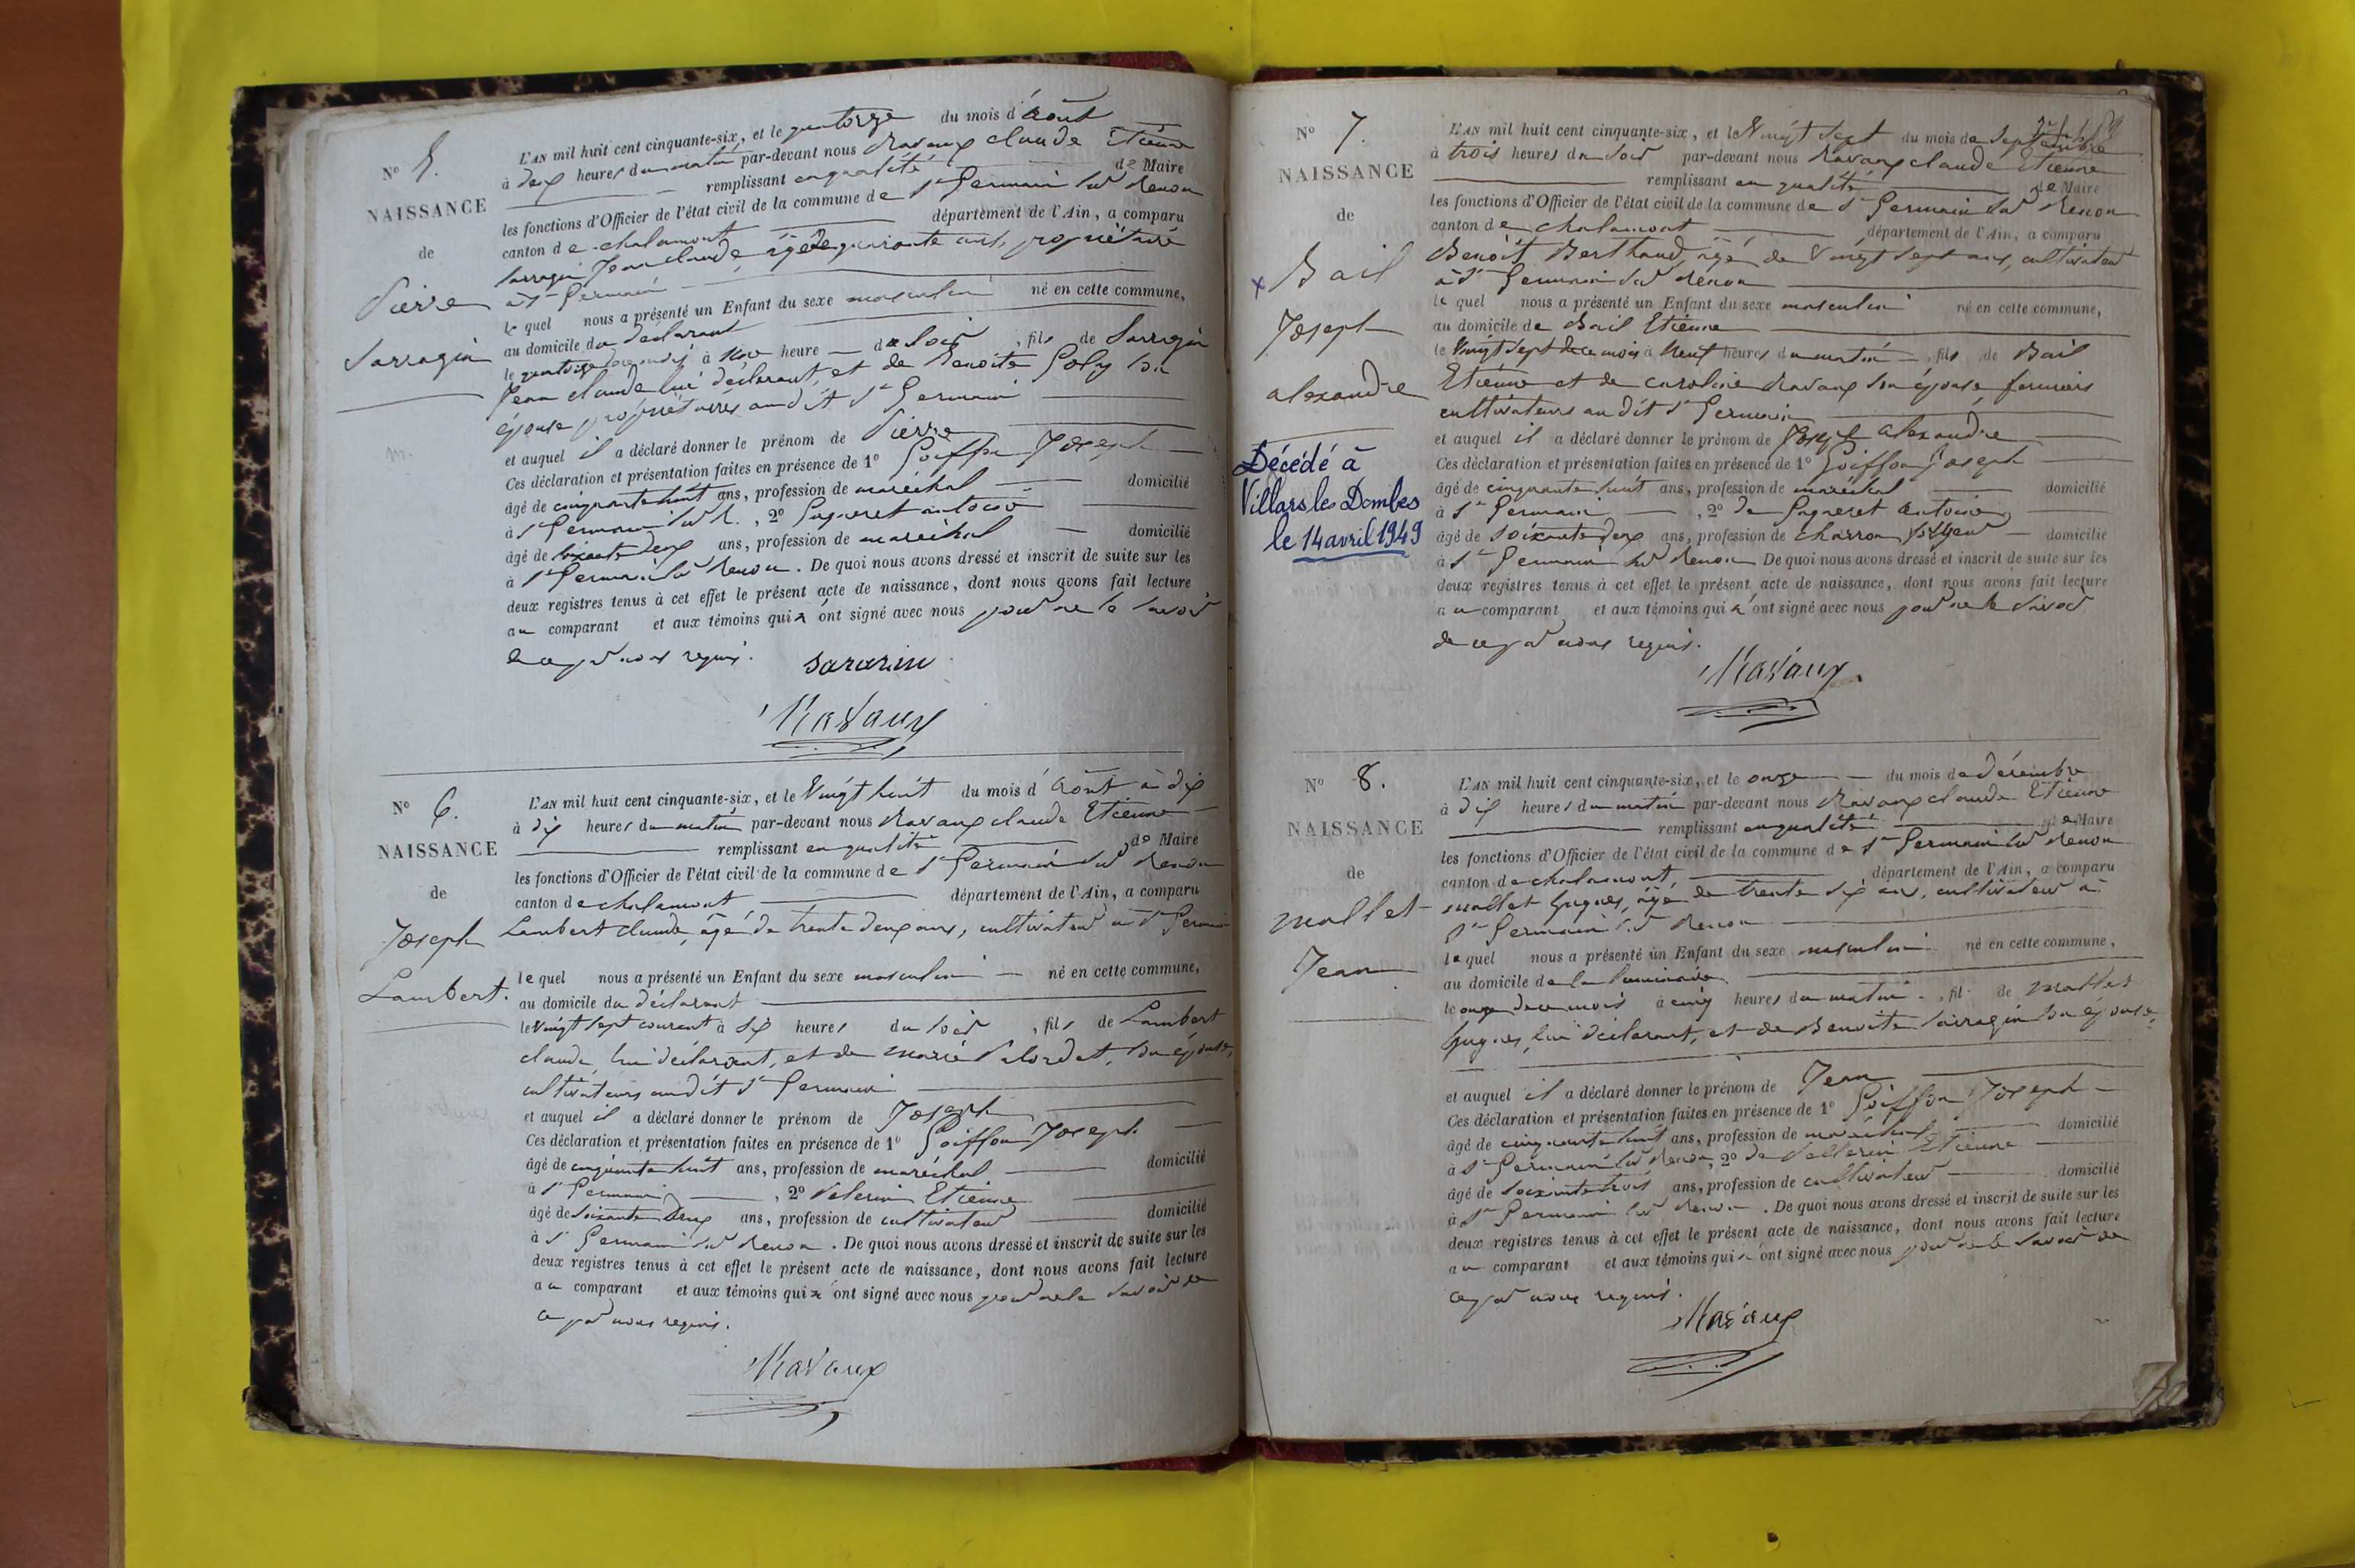 N° 5.
NAISSANCE
de
Pierre
Sarragin
L'AN mil huit cent cinquante-six, et le quatorze du mois d'Août
à deux heures du matin par-devant nous Ravaux claude Etienne
remplissant en qualité de Maire
les fonctions d'Officier de l'état civil de la commune de St Germain sur Renon
canton de chalamont département de l'Ain, a comparu
Sarragin Jean claude, âgé de quarante ans, propriétaire
à St Germain
le quel nous a présenté un Enfant du sexe masculin né en cette commune,
au domicile du déclarant
le quatorze à heure du soir, fils de Sarragin
Jean claude lui déclarant, et de Benoite Poly son
épouse propriétaires audit St Germain
et auquel il a déclaré donner le prénom de Pierre
Ces déclaration et présentation faites en présence de 1° Goiffon Joseph
âgé de cinquante huit ans, profession de maréchal domicilié
à St Germain sur R., 2° Pugneret antoine
âgé de soixante deux ans, profession de maréchal domicilié
à St Germain sur Renon. De quoi nous avons dressé et inscrit de suite sur les
deux registres tenus à cet effet le présent acte de naissance, dont nous avons fait lecture
au comparant et aux témoins qui n'ont signé avec nous pour ne le savoir
de ce par nous requis.
sararin
Ravaux
N° 6.
NAISSANCE
de
Joseph
Lambert.
L'AN mil huit cent cinquante-six, et le Vingt huit du mois d'Août à dix
à dix heures du matin par-devant nous Ravaux claude Etienne
remplissant en qualité de Maire
les fonctions d'Officier de l'état civil de la commune de St Germain sur Renon
canton de chalamont département de l'Ain, a comparu
Lambert claude, âgé de trente deux ans, cultivateur à St Germain
le quel nous a présenté un Enfant du sexe masculin né en cette commune,
au domicile du déclarant
le Vingt sept courant à six heures du soir, fils de Lambert
claude, lui déclarant, et de marie Palordet, son épouse,
cultivateurs audit St Germain
et auquel il a déclaré donner le prénom de Joseph
Ces déclaration et présentation faites en présence de 1° Goiffon Joseph
âgé de cinquante huit ans, profession de maréchal domicilié
à St Germain, 2° Velerin Etienne
âgé de soixante deux ans, profession de cultivateur domicilié
à St Germain sur Renon. De quoi nous avons dressé et inscrit de suite sur les
deux registres tenus à cet effet le présent acte de naissance, dont nous avons fait lecture
au comparant et aux témoins qui n'ont signé avec nous pour ne le savoir de
ce par nous requis.
Ravaux
N° 7.
NAISSANCE
de
x Bail
Joseph
alexandre
Décédé à
Villars les Dombes
le 14 avril 1949
L'AN mil huit cent cinquante-six, et le Vingt sept du mois de Septembre
à trois heures du soir par-devant nous Ravaux claude Etienne
remplissant en qualité de Maire
les fonctions d'Officier de l'état civil de la commune de St Germain sur Renon
canton de chalamont département de l'Ain, a comparu
Benoît Berthaud, âgé de Vingt sept ans, cultivateur
à St Germain sur Renon
le quel nous a présenté un Enfant du sexe masculin né en cette commune,
au domicile de Bail Etienne
le Vingt sept de ce mois à Neuf heures du matin, fils de Bail
Etienne et de caroline Ravaux son épouse, fermiers
cultivateurs au dit St Germain
et auquel il a déclaré donner le prénom de Joseph alexandre
Ces déclaration et présentation faites en présence de 1° Goiffon Joseph
âgé de cinquante huit ans, profession de maréchal domicilié
à St Germain, 2° de Pugneret Antoine
âgé de soixante deux ans, profession de charron domicilié
à St Germain sur Renon De quoi nous avons dressé et inscrit de suite sur les
deux registres tenus à cet effet le présent acte de naissance, dont nous avons fait lecture
au comparant et aux témoins qui n'ont signé avec nous pour ne le savoir
de ce par nous requis.
Ravaux.
N° 8.
NAISSANCE
de
mallet
Jean
L'AN mil huit cent cinquante-six, et le onze du mois de décembre
à dix heures du matin par-devant nous Ravaux claude Etienne
remplissant en qualité de Maire
les fonctions d'Officier de l'état civil de la commune de St Germain sur Renon
canton de chalamont, département de l'Ain, a comparu
mallet hugues, âgé de trente six ans, cultivateur à
St Germain sur Renon
le quel nous a présenté un Enfant du sexe masculin né en cette commune,
au domicile de la
le onze de ce mois à cinq heures du matin, fils de mallet
hugues, lui déclarant, et de Benoite Sarragin son épouse,
et auquel il a déclaré donner le prénom de Jean
Ces déclaration et présentation faites en présence de 1° Goiffon Joseph
âgé de cinquante huit ans, profession de maréchal domicilié
à St Germain sur Renon, 2° de Vellerin Etienne
âgé de soixante trois ans, profession de cultivateur domicilié
à St Germain sur Renon. De quoi nous avons dressé et inscrit de suite sur les
deux registres tenus à cet effet le présent acte de naissance, dont nous avons fait lecture
au comparant et aux témoins qui n'ont signé avec nous pour ne le savoir de
ce par nous requis.
Ravaux